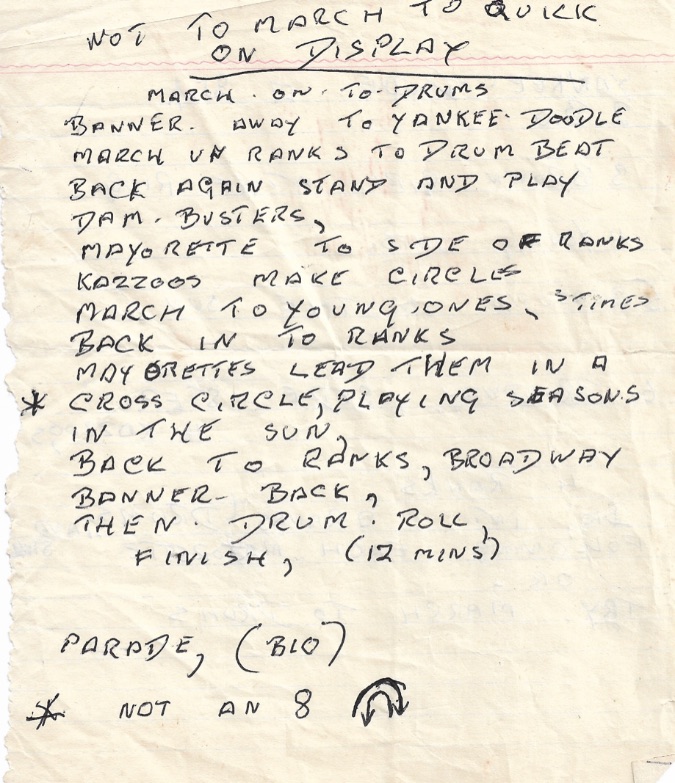 NOT TO MARCH TO QUICK
ON DISPLAY
MARCH . ON . TO . DRUMS
BANNER. AWAY TO YANKEE. DOODLE
MARCH UN RANKS TO DRUM BEAT
BACK AGAIN STAND AND PLAY
DAM. BUSTERS,
MAYORETTE TO SIDE OF RANKS
KAZZOOS MAKE CIRCLES
MARCH TO YOUNG.ONES, 3 TIMES
BACK IN TO RANKS
MAYORETTES LEAD THEM IN A
* CROSS CIRCLE, PLAYING SEASONS
IN THE SUN,
BACK TO RANKS, BROADWAY
BANNER- BACK,
THEN DRUM. ROLL,
FINISH, (12 MINS)
PARADE, (BIO)
* NOT AN 8